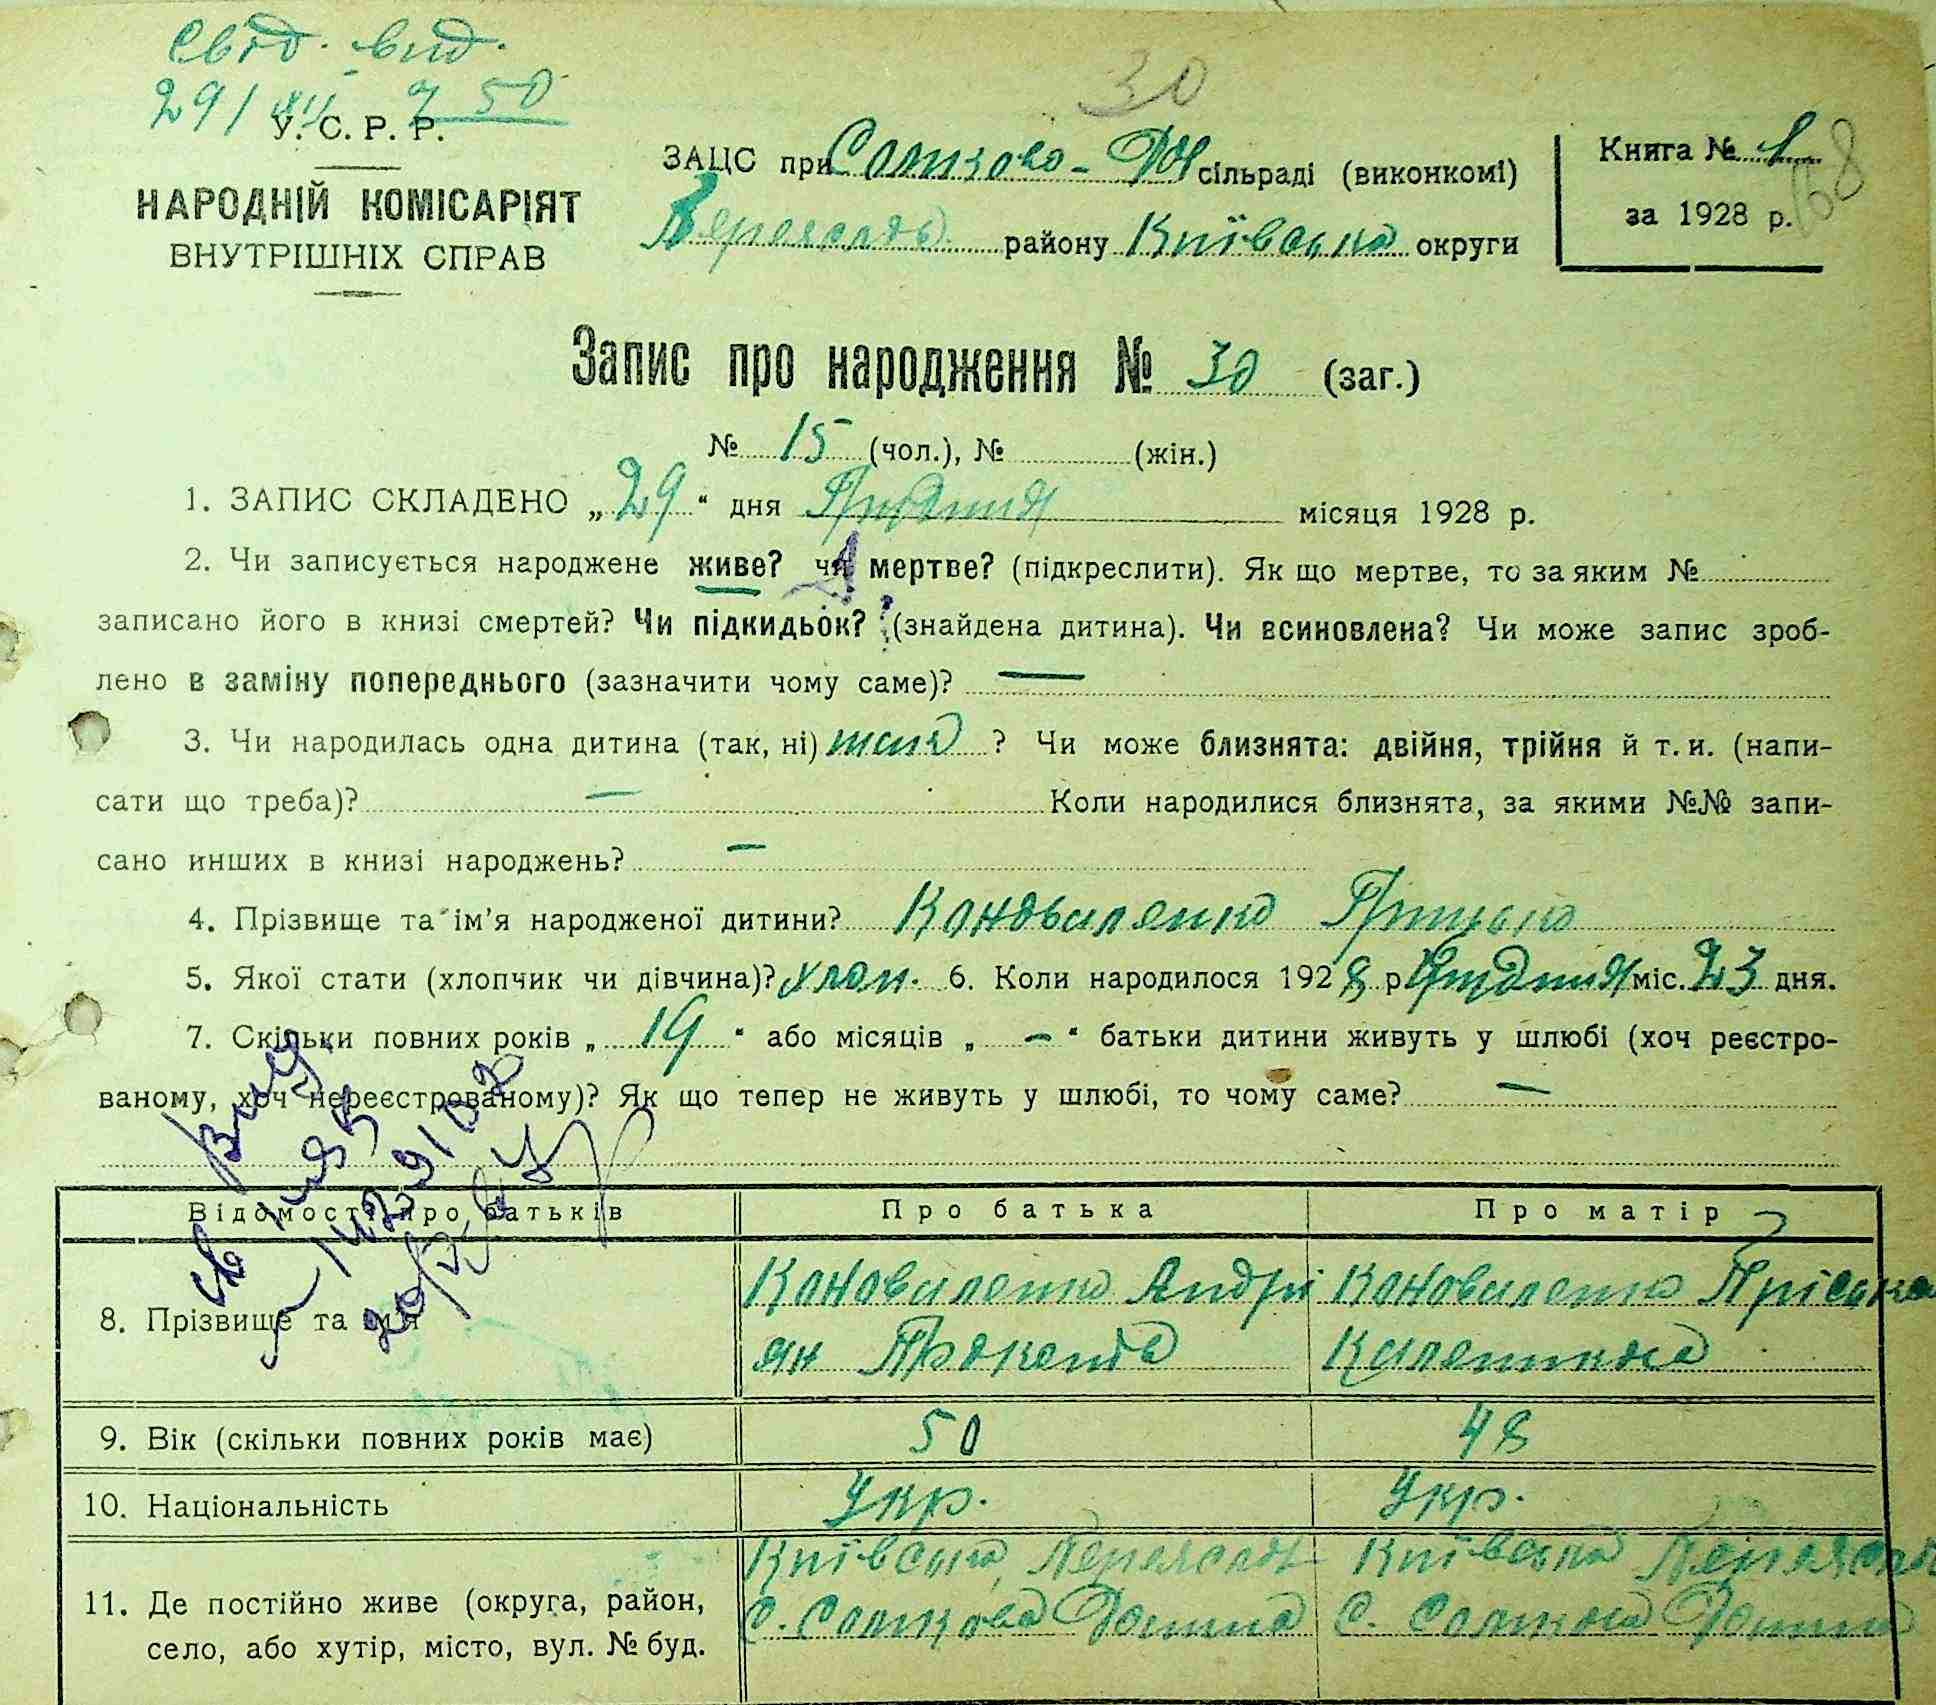 Свід. вид.
29/ 7 50
30
У. С. Р. Р.
НАРОДНІЙ КОМІСАРІЯТ
ВНУТРІШНІХ СПРАВ
ЗАЦС при сільраді (виконкомі)
району Київська округи
Книга № 1
за 1928 р.
68
Запис про народження № 30 (заг.)
№ 15 (чол.), № (жін.)
1. ЗАПИС СКЛАДЕНО „29“ дня Грудня місяця 1928 р.
2. Чи записується народжене живе? чи мертве? (підкреслити). Як що мертве, то за яким №
записано його в книзі смертей? Чи підкидьок? (знайдена дитина). Чи всиновлена? Чи може запис зроб-
лено в заміну попереднього (зазначити чому саме)? —
3. Чи народилась одна дитина (так, ні) ? Чи може близнята: двійня, трійня й т. и. (напи-
сати що треба)? — Коли народилися близнята, за якими №№ запи-
сано инших в книзі народжень? —
4. Прізвище та ім'я народженої дитини? Грицько
5. Якої стати (хлопчик чи дівчина)? хлоп. 6. Коли народилося 1928 р Грудня міс. 23 дня.
7. Скільки повних років „19“ або місяців „—“ батьки дитини живуть у шлюбі (хоч реєстро-
ваному, хоч нереєстрованому)? Як що тепер не живуть у шлюбі, то чому саме? —
Відомості про батьків Про батька Про матір
8. Прізвище та ім'я
Коноваленко Андрі
ян
Коноваленко Пріська
9. Вік (скільки повних років має) 50 48
10. Національність Укр. Укр.
11. Де постійно живе (округа, район,
село, або хутір, місто, вул. № буд.
Київська, Переяслав
с.
Київська
с.